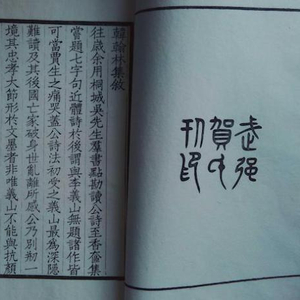 武强
賀氏
刊印
韓翰林集敘
往歲余用桐城吳先生羣書點勘讀公詩至香奩集
嘗題七字句近體詩於後謂與李義山無題諸作皆
可當賈生之痛哭蓋公詩法初受之義山最爲深隱
難讀及其後國亡家破身世亂離所感公乃别刱一
境其忠孝大節形於文墨者非唯義山不能與抗顏